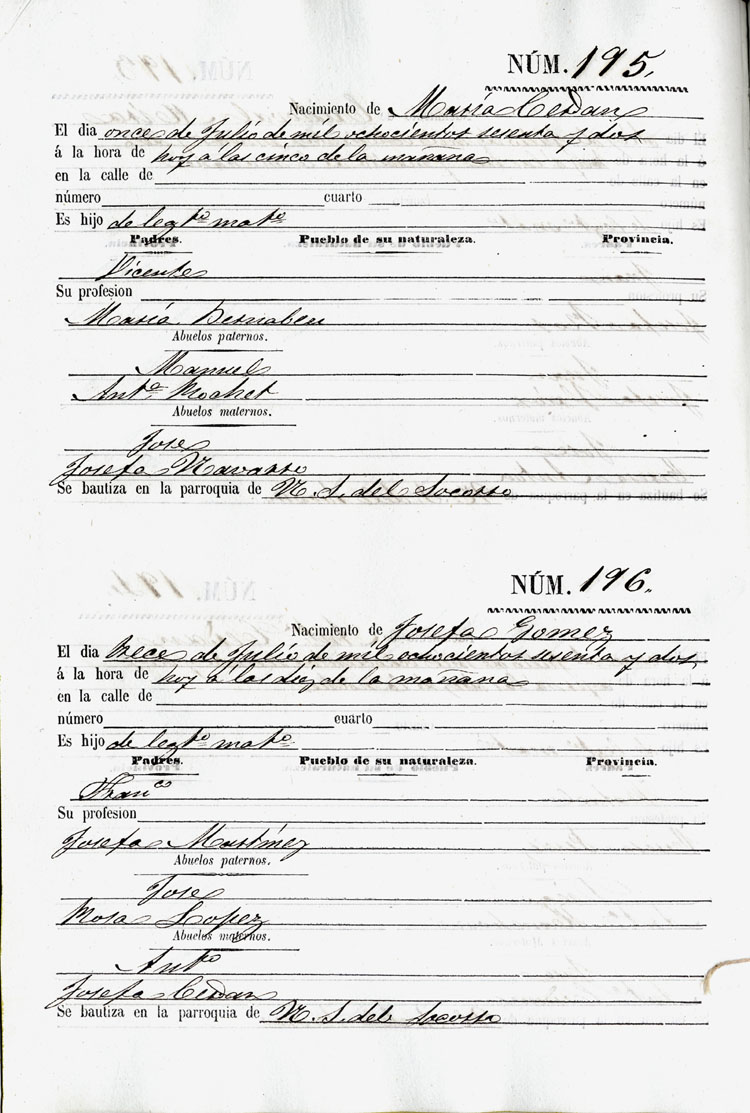 NÚM. 195.
Nacimiento de María Cerdan
El dia once de Julio de mil ochocientos sesenta y dos
á la hora de hoy a las cinco de la mañana
en la calle de
número cuarto
Es hijo de legto. mato.
Padres. Pueblo de su naturaleza. Provincia.
Vicente
Su profesion
María Bernabeu
Abuelos paternos.
Manuel
Anta. Rochet
Abuelos maternos.
Jose
Josefa Navarro
Se bautiza en la parroquia de N. S. del Socorro
NÚM. 196.
Nacimiento de Josefa Gomez
El dia trece de Julio de mil ochocientos sesenta y dos
á la hora de hoy a las diez de la mañana
en la calle de
número cuarto
Es hijo de legto. mato.
Padres. Pueblo de su naturaleza. Provincia.
Franco
Su profesion
Josefa Martinez
Abuelos paternos.
Jose
Rosa Lopez
Abuelos maternos.
Anto.
Josefa Cerdan
Se bautiza en la parroquia de N. S. del Socorro